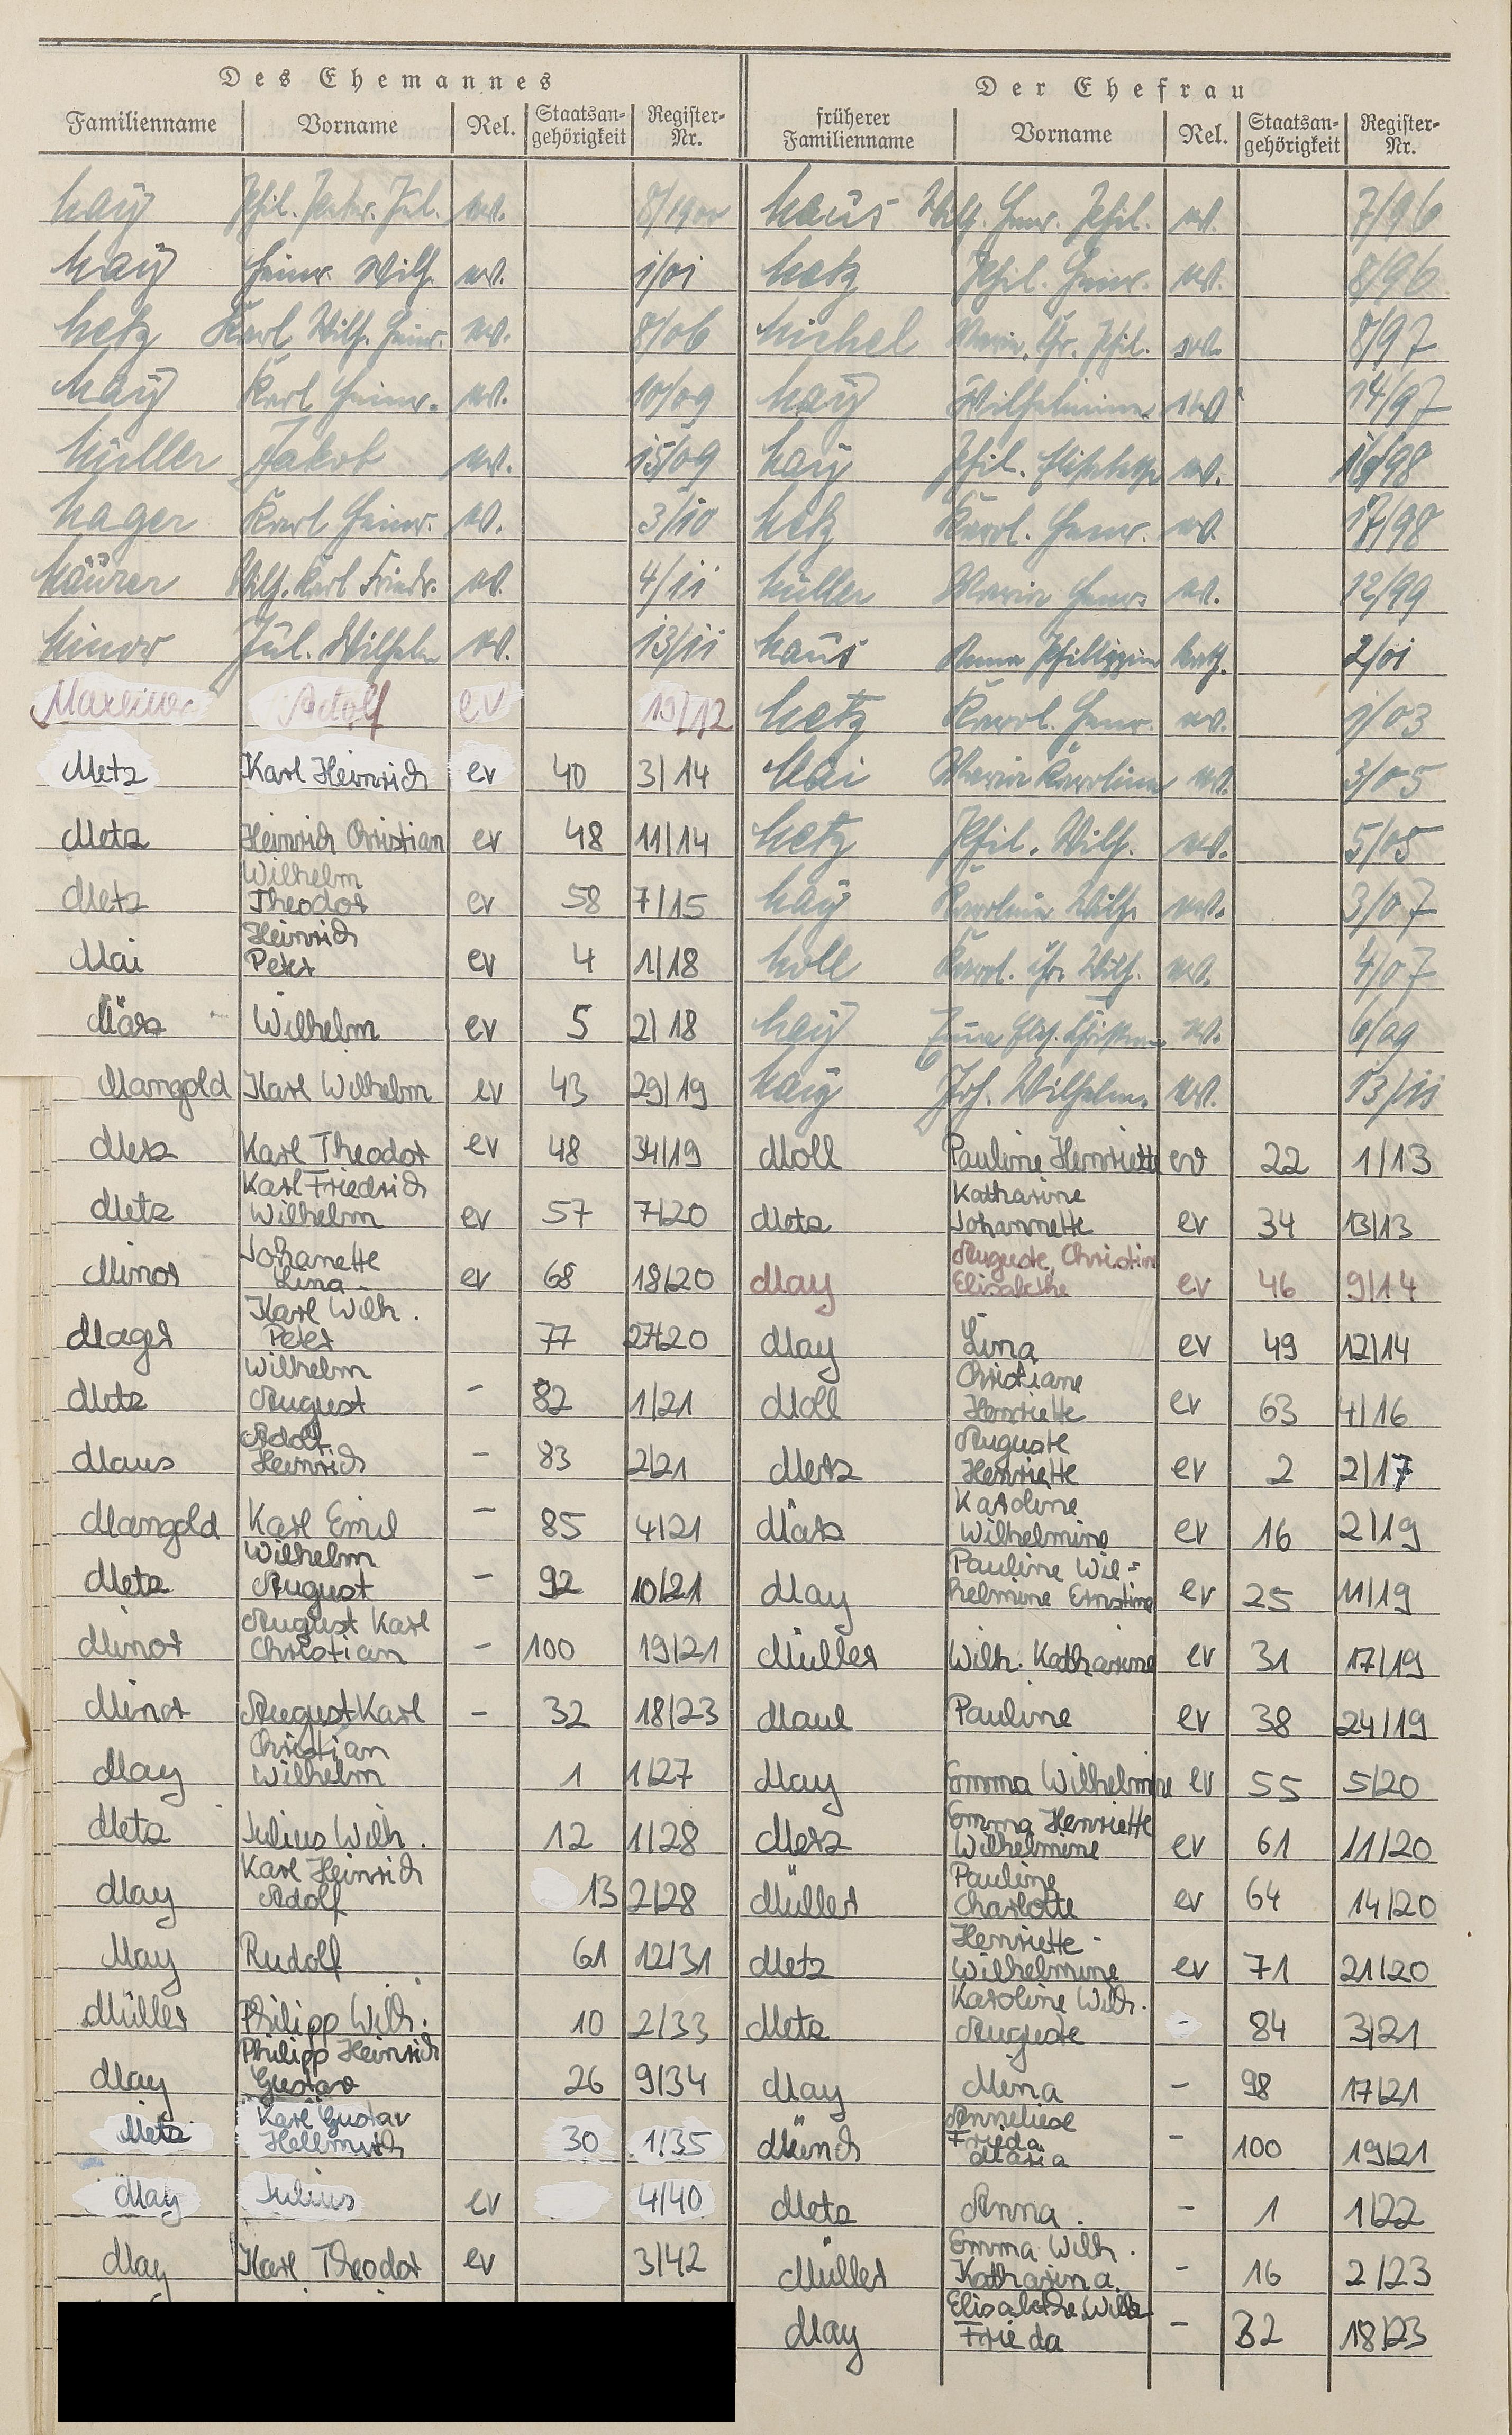 Des Ehemannes Der Ehefrau
Familienname Vorname Rel. Staatsan-gehörigkeit Register-Nr. früherer Familienname Vorname Rel. Staatsan-gehörigkeit Register-Nr.
May Phil. Peter Jul. ev. 8/1900 Maus Wilh. Henr. Phil. ev. 7/96
May Heinr. Wilh. ev. 1/01 Metz Phil. Henr. ev. 8/96
Metz Karl Wilh. Heinr. ev. 8/06 Michel Phil. ev. 8/97
May Karl Heinr. ev. 10/09 May Wilhelmine ev 14/97
Müller Jakob ev. 15/09 May Phil. Elisabethe ev. 16/98
Mager Karl Heinr. ev. 3/10 Metz Karol. Henr. ev. 17/98
Mäurer Wilh. Karl Friedr. ev. 4/11 Müller Maria Henr. ev. 12/99
Minor Jul. Wilhelm ev. 13/11 Maus Anna Philippine kath. 2/01
Adolf ev 19/12 Metz Karol. Henr. ev. 1/03
Metz Karl Heinrich ev 40 3/14 Mai Maria Karoline ev. 3/05
Metz Heinrich Christian ev 48 11/14 Metz Phil. Wilh. ev. 5/05
Metz Wilhelm Theodor ev 58 7/15 May Karoline Wilh. ev. 3/07
Mai Heinrich Peter ev 4 1/18 Moll Karol. Chr. Wilh. ev. 4/07
März Wilhelm ev 5 2/18 May ev. 6/09
Mangold Karl Wilhelm ev 43 29/19 May Joh. Wilhelm. ev. 13/11
Merz Karl Theodor ev 48 34/19 Moll Pauline Henriette ev 22 1/13
Metz Karl Friedrich Wilhelm ev 57 7/20 Metz Katharine Johannette ev 34 13/13
Minor Johanette Lina - ev 68 18/20 May Auguste, Christine Elisabethe ev 46 9/14
Mager Karl Wilh. Peter 77 27/20 May Lina ev 49 12/14
Metz Wilhelm August - 82 1/21 Moll Christiane Henriette ev 63 4/16
Maus Adolf Heinrich - 83 2/21 Merz Auguste Henriette ev 2 2/17
Mangold Karl Emil - 85 4/21 März Karoline Wilhelmine ev 16 2/19
Metz Wilhelm August - 92 10/21 May Pauline Wil=helmine Ernstine ev 25 11/19
Minor August Karl Christian - 100 19/21 Müller Wilh. Katharine ev 31 17/19
Minor August Karl - 32 18/23 Maul Pauline ev 38 24/19
May Christian Wilhelm 1 1/27 May Emma Wilhelmine ev 55 5/20
Metz Julius Wilh. 12 1/28 Merz Emma Henriette Wilhelmine ev 61 11/20
May Karl Heinrich Adolf 13 2/28 Müller Pauline Charlotte ev 64 14/20
May Rudolf 61 12/31 Metz Henriette - Wilhelmine ev 71 21/20
Müller Philipp Wilh. 10 2/33 Metz Karoline Wilh. Auguste - 84 3/21
May Philipp Heinrich Gustav 26 9/34 May Mina - 98 17/21
Metz Karl Gustav Hellmuth 30 1/35 Münch Anneliese Frieda Maria - 100 19/21
May Julius ev 4/40 Metz Anna. - 1 1/22
May Karl Theodor ev 3/42 Müller Emma Wilh. Katharina. - 16 2/23
May Elisabethe Wilh. Frieda - 32 18/23